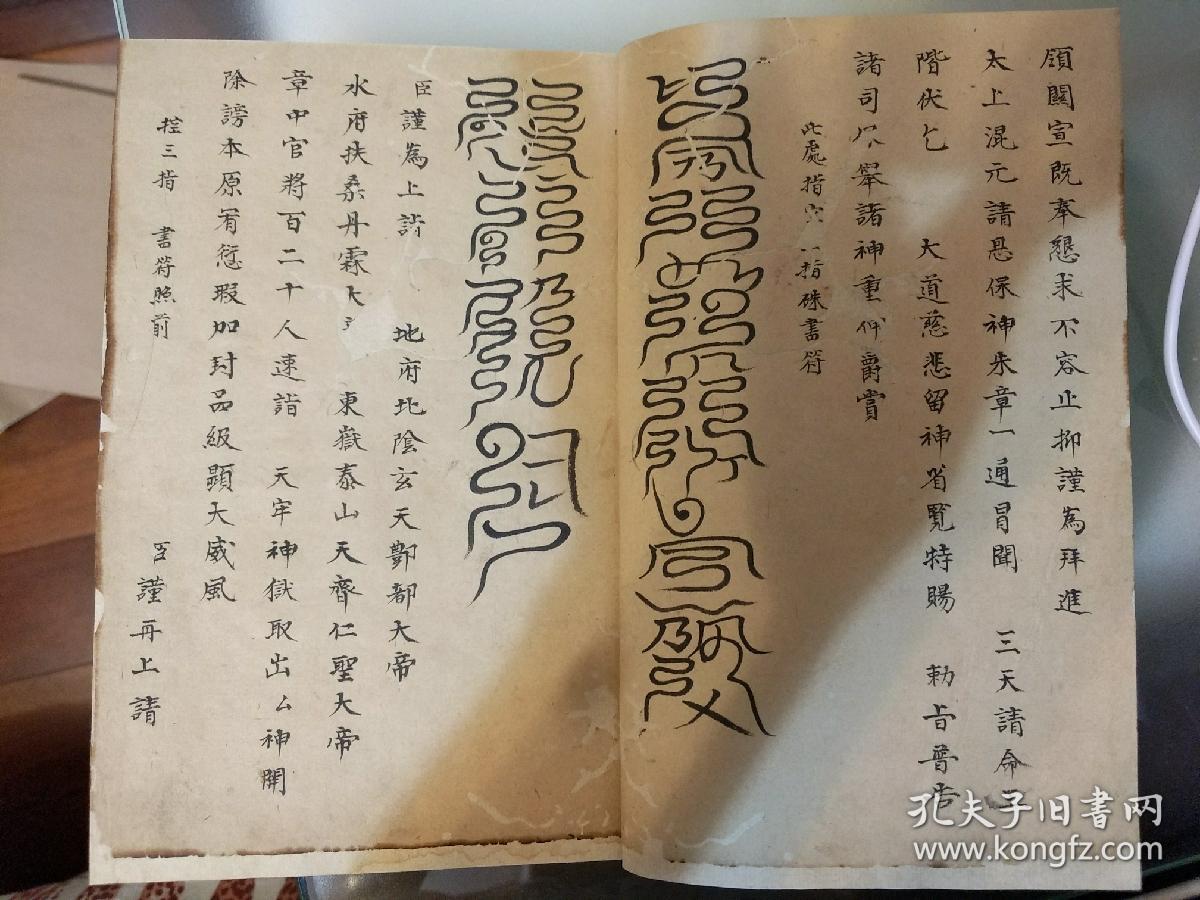 領關宣既奉懇求不容止抑謹為拜進
太上混元請恩保神朱章一通冒聞 三天請命
階伏乞 大道慈悲留神省覽特賜 勅旨普告
諸司 舉諸神重 爵賞
此處指 指硃書符
臣謹為上請 地府北陰玄天酆都大帝
水府扶桑丹霖大 東嶽泰山天齊仁聖大帝
章中官將百二十人速詣 天牢神獄取出厶神開
除謗本原宥愆瑕加封品級顯大威風
掐三指 書符照前 臣謹再上請
孔夫子旧书网
www.kongfz.com